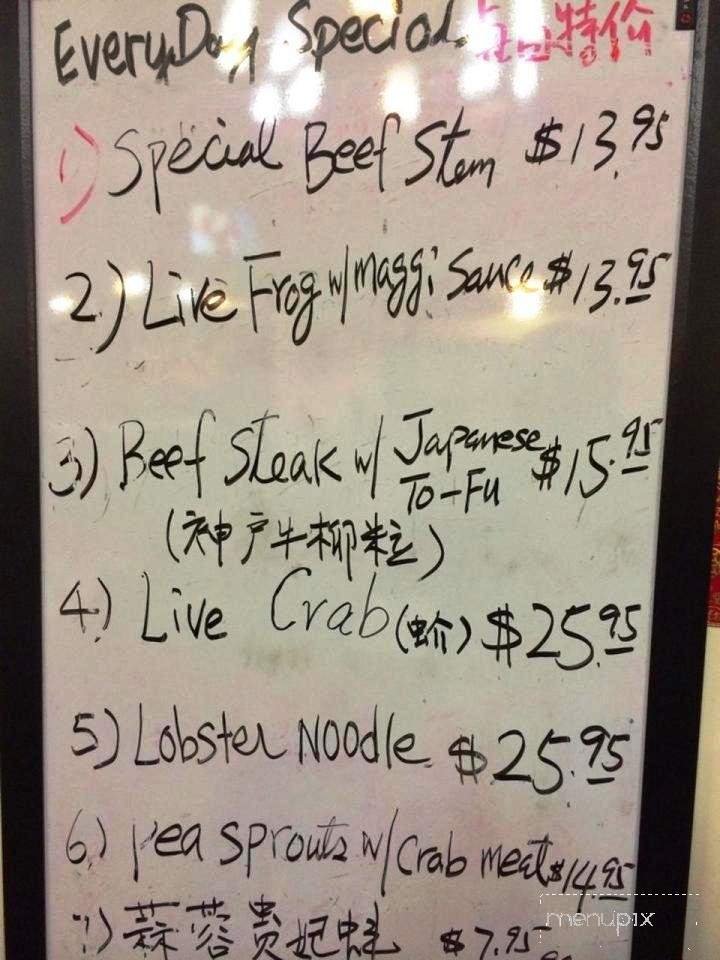 EveryDay Special 每日特价
1) Special Beef Stem $13.95
2) Live Frog w/ maggi Sauce $13.95
3) Beef Steak w/ Japanese To-Fu $15.95
(神户牛柳粒)
4.) Live Crab (蚧) $25.95
5) Lobster Noodle $25.95
6.) Pea sprouts w/ Crab meat $14.95
7.) 蒜蓉贵妃蚌 $7.95
menupix